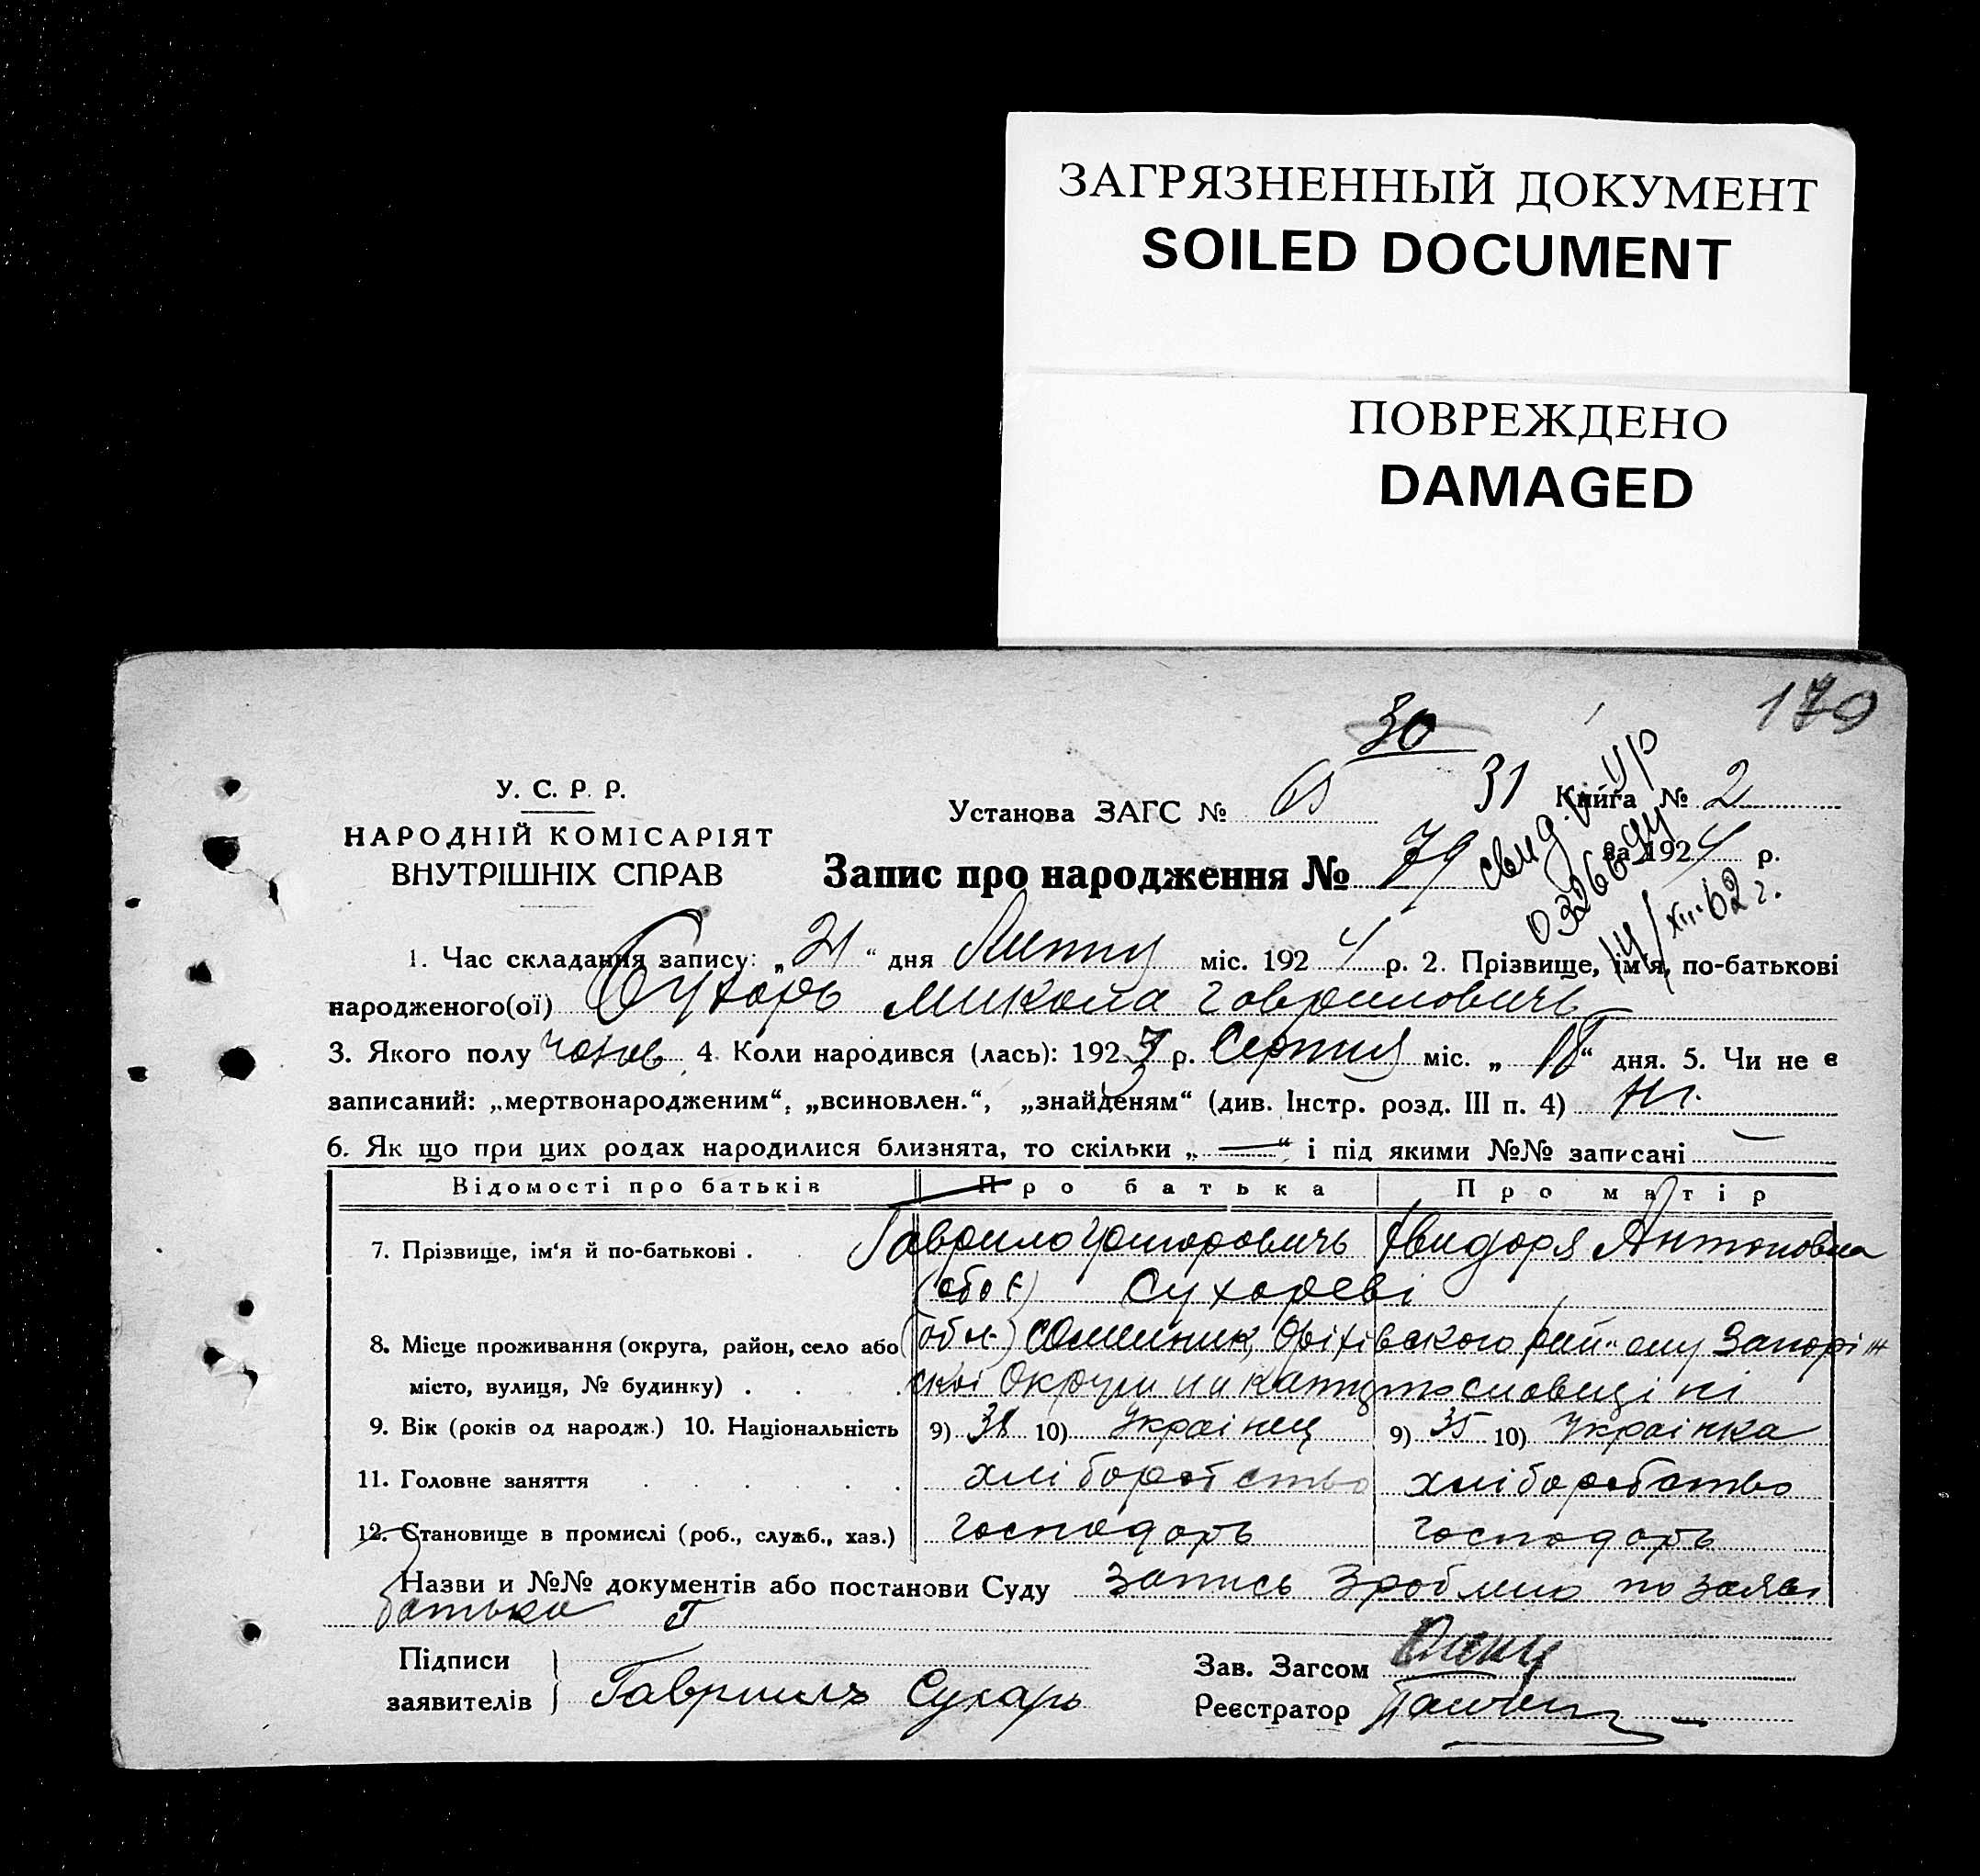 ЗАГРЯЗНЕННЫЙ ДОКУМЕНТ
SOILED DOCUMENT
ПОВРЕЖДЕНО
DAMAGED
170
30
31
У. С. Р. Р.
НАРОДНІЙ КОМІСАРІЯТ
ВНУТРІШНІХ СПРАВ
Установа ЗАГС № Книга № 2
Запис про народження № 79 за 1924 р.
свид.
14/XII-62 г.
1. Час складання запису: „21“ дня Липня міс. 1924 р. 2. Прізвище, ім'я, по-батькові
народженого(ої) Сухарь Микола Гаврилович
3. Якого полу чолов. 4. Коли народився (лась): 1923 р. Серпня міс. „18“ дня. 5. Чи не е
записаний: „мертвонародженим“, „всиновлен.“, „знайденям“ (див. Інстр. розд. III п. 4) Ні.
6. Як що при цих родах народилися близнята, то скільки „—“ і під якими №№ записані —
Відомості про батьків Про батька Про матір
7. Прізвище, ім‘я й по-батькові . Гаврило Григоровичь Явидоря Антоновна
(обоє) Сухареві
8. Місце проживання (округа, район, село або Оріхівского району Запоріж
місто, вулиця, № будинку) . . . . ської Округи на
9. Вік (років од народж.) 10. Національність 9) 38 10) Українец 9) 35 10) Українка
11. Головне заняття . . . . . . хліборобство хліборобство
12. Становище в промислі (роб., служб., хаз.) господарь господарь
Назви и №№ документів або постанови Суду Запись зроблено по заяві
батька
Підписи
заявителів Гавриилъ Сухарь
Зав. Загсом
Реєстратор